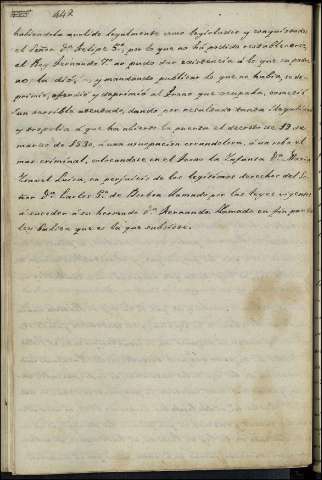 442
habiendola anulado legalmente como legislador y conquistador
el Señor Dn. Felipe 5o., por lo que no ha podido restablecerse,
el Rey Fernando 7o. no pudo dar existencia á lo que su padre
no la dió, y mandando publicar lo que no habia,
y deprimió al Trono que ocupaba, cometió
un horrible atentado, dando por resultado tanta ilegalidad
y tropelia á que han abierto la puerta el decreto de 29 de
marzo de 1830, á una usurpacion escandalosa, á un robo el
mas criminal, colocandose en el Trono la Infanta Da. Maria
Isavel Luisa, en perjuicio de los legitimos derechos del Se-
ñor Dn. Carlos 5o. de Borbon llamado por las leyes vigentes
á suceder á su hermano Dn. Fernando llamado en fin por la
ley Salica que es la que subsiste.